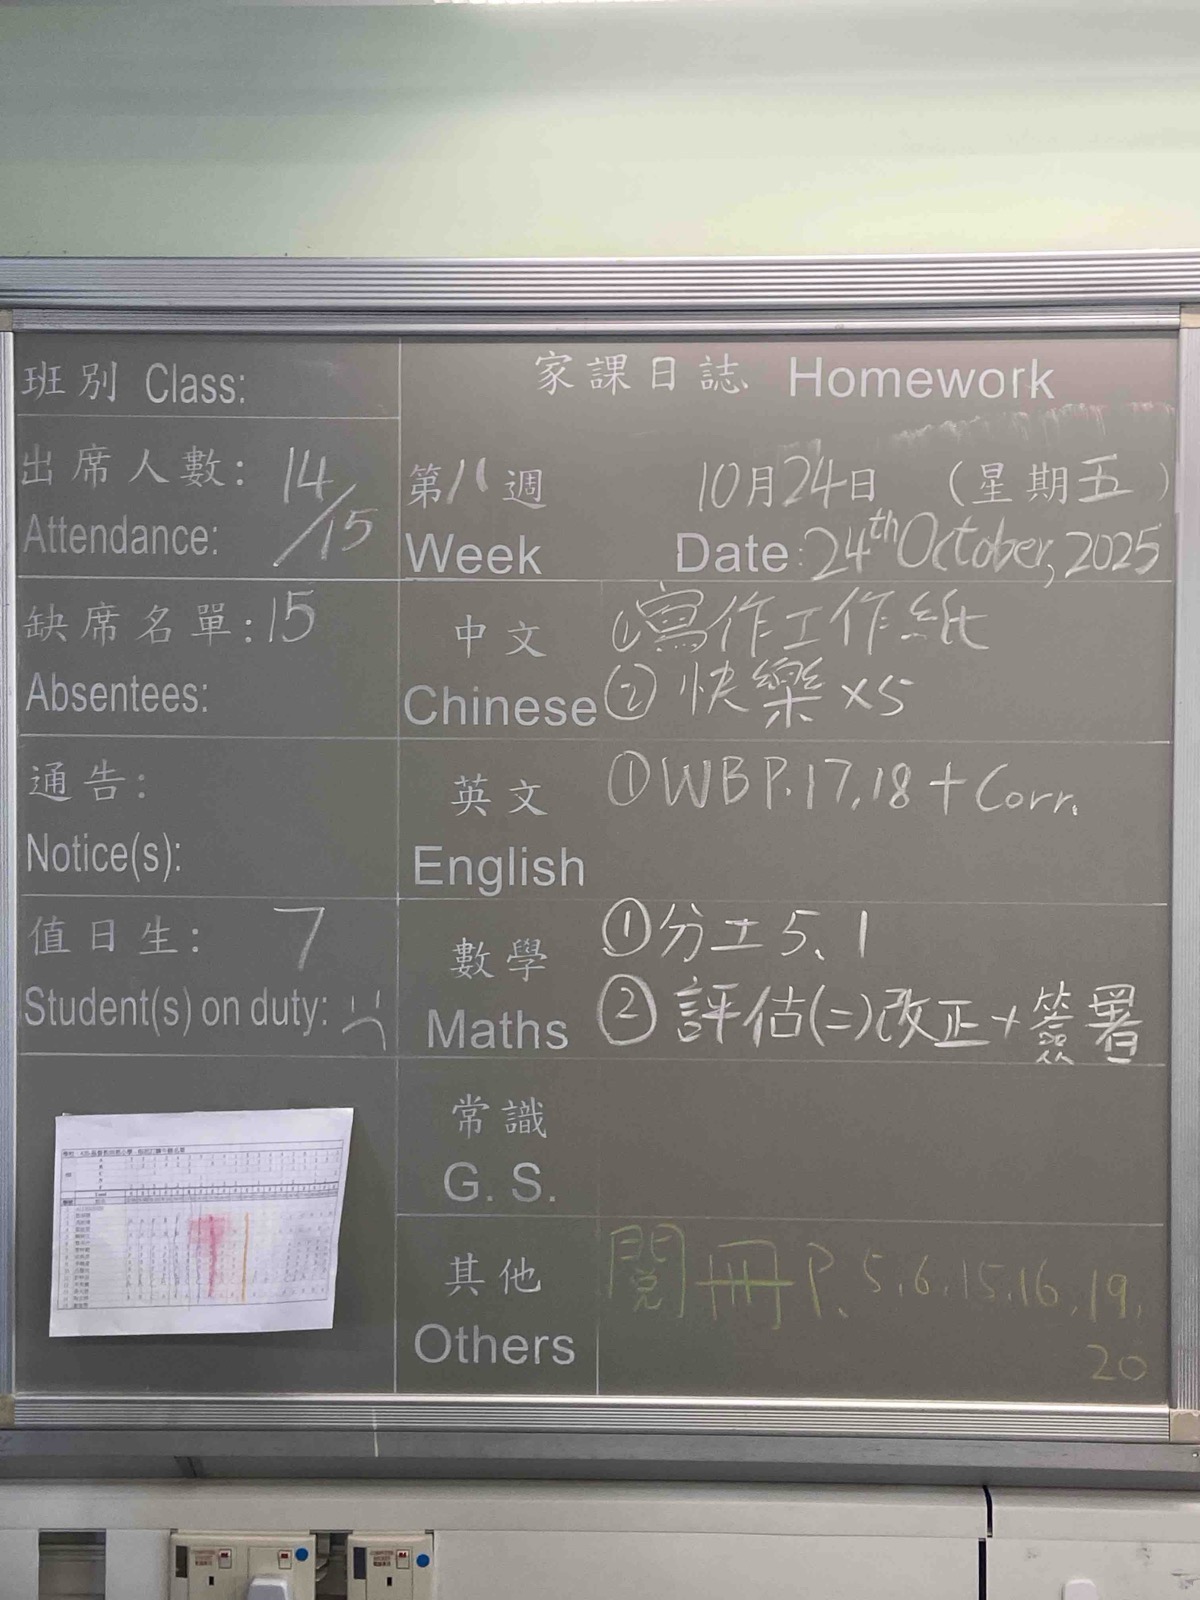 班別 Class:
出席人數: 14/15
Attendance:
缺席名單: 15
Absentees:
通告:
Notice(s):
值日生: 7
Student(s) on duty:
家課日誌 Homework
第八週 10月24日 (星期五)
Week Date: 24th October, 2025
中文 ①寫作工作紙
Chinese ② 快樂 ×5
英文 ① WB P.17,18 + Corr.
English
數學 ①分工 5、1
Maths ② 評估(二)改正+簽署
常識
G. S.
其他 閱冊 P. 5,6,15,16,19,
Others 20